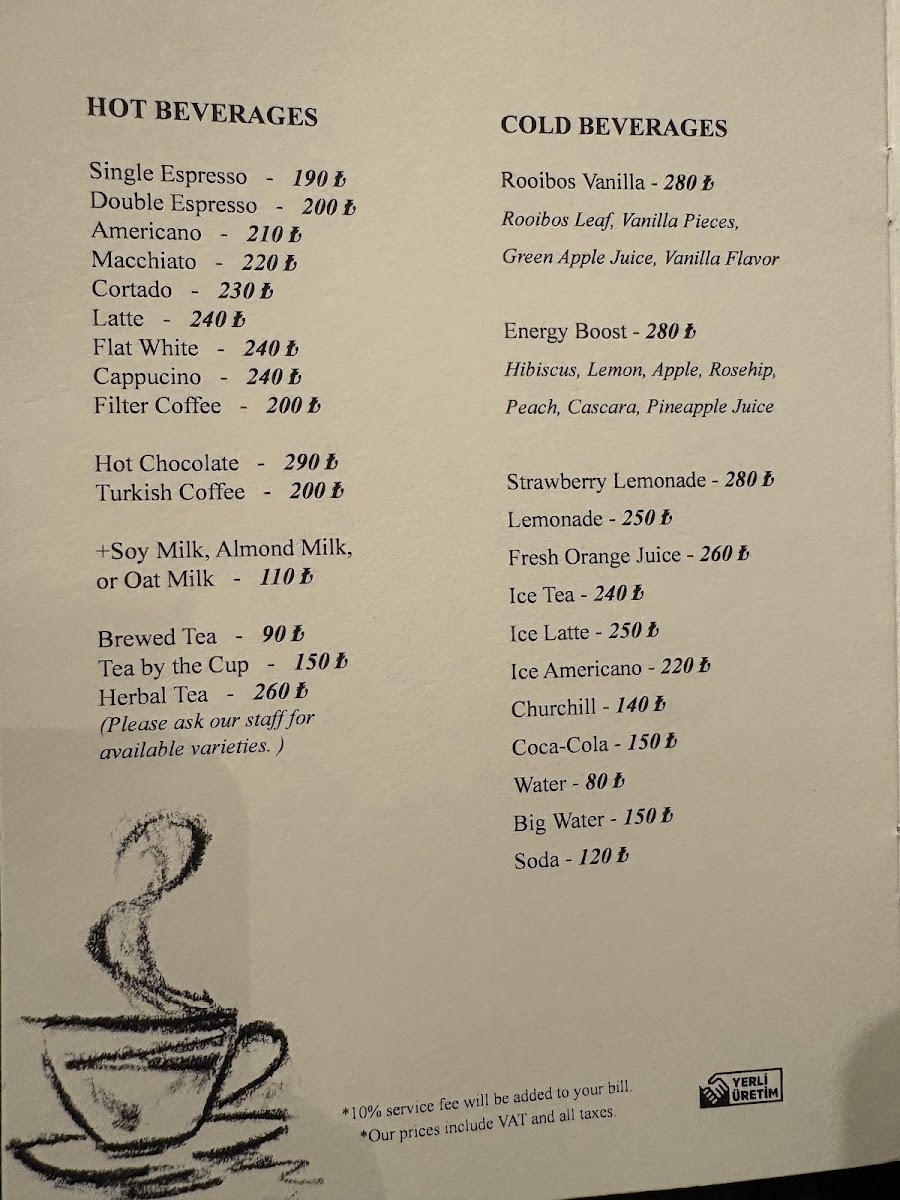 HOT BEVERAGES
Single Espresso - 190 ₺
Double Espresso - 200 ₺
Americano - 210 ₺
Macchiato - 220 ₺
Cortado - 230 ₺
Latte - 240 ₺
Flat White - 240 ₺
Cappucino - 240 ₺
Filter Coffee - 200 ₺
Hot Chocolate - 290 ₺
Turkish Coffee - 200 ₺
+Soy Milk, Almond Milk,
or Oat Milk - 110 ₺
Brewed Tea - 90 ₺
Tea by the Cup - 150 ₺
Herbal Tea - 260 ₺
(Please ask our staff for
available varieties. )
COLD BEVERAGES
Rooibos Vanilla - 280 ₺
Rooibos Leaf, Vanilla Pieces,
Green Apple Juice, Vanilla Flavor
Energy Boost - 280 ₺
Hibiscus, Lemon, Apple, Rosehip,
Peach, Cascara, Pineapple Juice
Strawberry Lemonade - 280 ₺
Lemonade - 250 ₺
Fresh Orange Juice - 260 ₺
Ice Tea - 240 ₺
Ice Latte - 250 ₺
Ice Americano - 220 ₺
Churchill - 140 ₺
Coca-Cola - 150 ₺
Water - 80 ₺
Big Water - 150 ₺
Soda - 120 ₺
*10% service fee will be added to your bill.
*Our prices include VAT and all taxes.
YERLİ
ÜRETİM